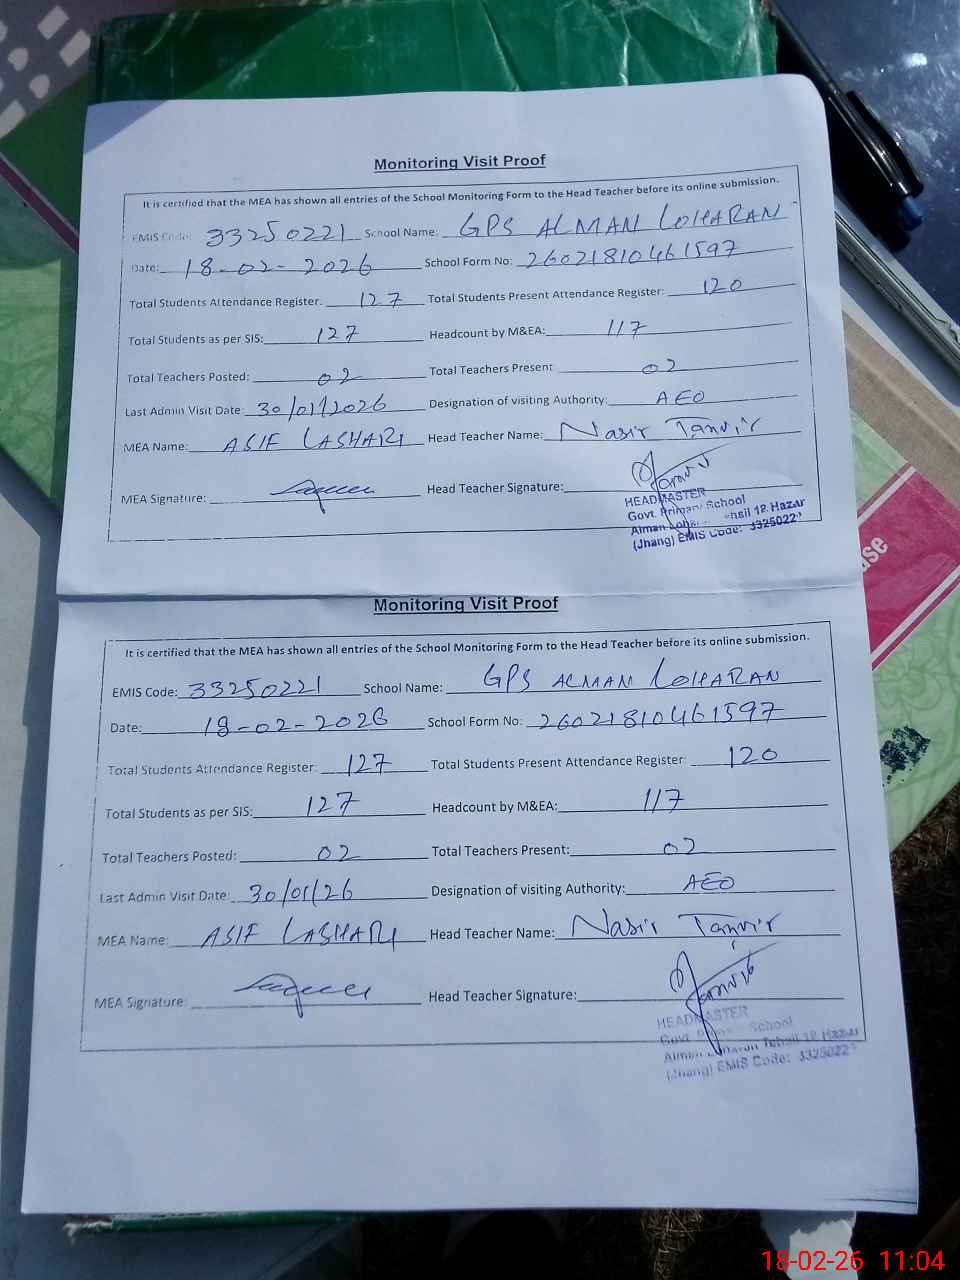 Monitoring Visit Proof
It is certified that the MEA has shown all entries of the School Monitoring Form to the Head Teacher before its online submission.
EMIS Code: 33250221 School Name: GPS ALMAN LOHARAN
Date: 18-02-2026 School Form No: 26021810461597
Total Students Attendance Register: 127 Total Students Present Attendance Register: 120
Total Students as per SIS: 127 Headcount by M&EA: 117
Total Teachers Posted: 02 Total Teachers Present 02
Last Admin Visit Date: 30/01/2026 Designation of visiting Authority: AEO
MEA Name: ASIF LASHARI Head Teacher Name: Nasir Tanvir
MEA Signature: Head Teacher Signature:
HEADMASTER
Govt. Primary School
Alman Tehsil 18 Hazari
(Jhang) EMIS Code: 33250221
Monitoring Visit Proof
It is certified that the MEA has shown all entries of the School Monitoring Form to the Head Teacher before its online submission.
EMIS Code: 33250221 School Name: GPS ALMAN LOHARAN
Date: 18-02-2026 School Form No: 26021810461597
Total Students Attendance Register: 127 Total Students Present Attendance Register: 120
Total Students as per SIS: 127 Headcount by M&EA: 117
Total Teachers Posted: 02 Total Teachers Present: 02
Last Admin Visit Date: 30/01/26 Designation of visiting Authority: AEO
MEA Name: ASIF LASHARI Head Teacher Name: Nasir Tanvir
MEA Signature: Head Teacher Signature:
HEADMASTER
Govt. School
Alman Loharan Tehsil 18 Hazari
(Jhang) EMIS Code: 33250221
18-02-26 11:04